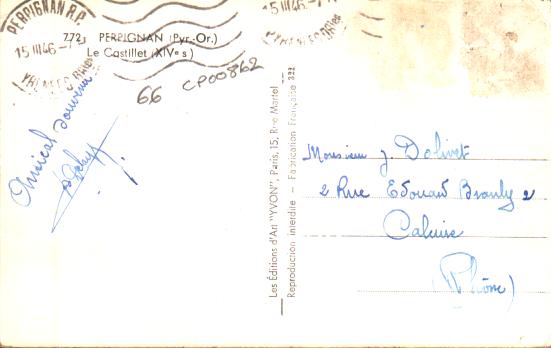 PERPIGNAN R.P.
15 III 46
772 PERPIGNAN (Pyr.-Or.)
Le Castillet (XIVe s)
66 CP00862
Amical souvenir
Les Éditions d'Art "YVON", Paris, 15, Rue Martel
Reproduction interdite - Fabrication Française 322
Monsieur J. Dolivet
2 Rue Edouard Branly 2
Caluire
(Rhône)